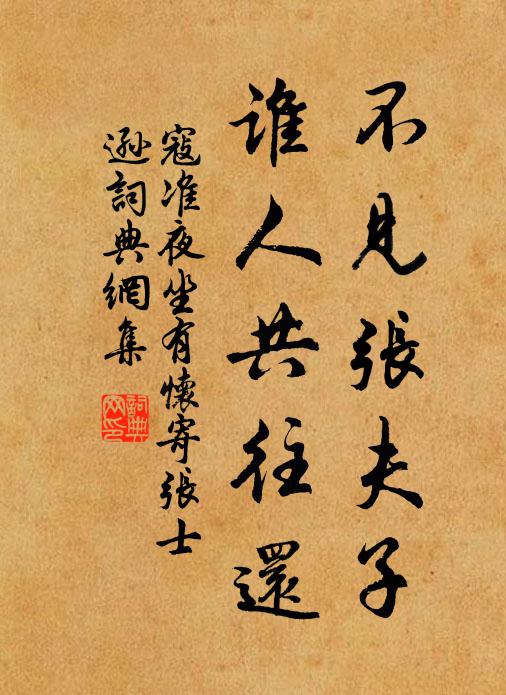 不見張夫子
誰人共往還
寇准夜坐有懷寄張士
遜詞典網集
詞典
网印